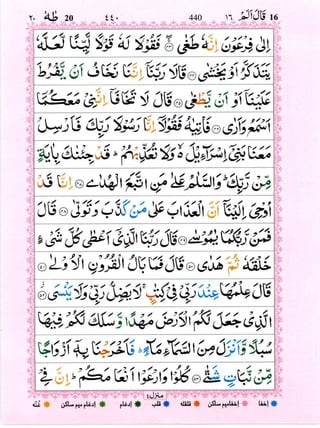 ٢٠ طٰهٰ 20 ٤٤٠ 440 قَالَ اَلَمْ ١٦ 16
اِلٰى فِرْعَوْنَ اِنَّهٗ طَغٰى فَقُوْلَا لَهٗ قَوْلًا لَّيِّنًا لَّعَلَّهٗ
يَتَذَكَّرُ اَوْ يَخْشٰى قَالَا رَبَّنَآ اِنَّنَا نَخَافُ اَنْ يَّفْرُطَ
عَلَيْنَآ اَوْ اَنْ يَّطْغٰى قَالَ لَا تَخَافَآ اِنَّنِيْ مَعَكُمَآ
اَسْمَعُ وَاَرٰى فَاْتِيٰهُ فَقُوْلَآ اِنَّا رَسُوْلَا رَبِّكَ فَاَرْسِلْ
مَعَنَا بَنِيْٓ اِسْرَآءِيْلَ وَلَا تُعَذِّبْهُمْ قَدْ جِئْنٰكَ بِاٰيَةٍ
مِّنْ رَّبِّكَ وَالسَّلٰمُ عَلٰى مَنِ اتَّبَعَ الْهُدٰى اِنَّا قَدْ
اُوْحِيَ اِلَيْنَآ اَنَّ الْعَذَابَ عَلٰى مَنْ كَذَّبَ وَتَوَلّٰى قَالَ
فَمَنْ رَّبُّكُمَا يٰمُوْسٰى قَالَ رَبُّنَا الَّذِيْٓ اَعْطٰى كُلَّ شَيْءٍ
خَلْقَهٗ ثُمَّ هَدٰى قَالَ فَمَا بَالُ الْقُرُوْنِ الْاُوْلٰى
قَالَ عِلْمُهَا عِنْدَ رَبِّيْ فِيْ كِتٰبٍ لَا يَضِلُّ رَبِّيْ وَلَا يَنْسَى
الَّذِيْ جَعَلَ لَكُمُ الْاَرْضَ مَهْدًا وَّسَلَكَ لَكُمْ فِيْهَا
سُبُلًا وَّاَنْزَلَ مِنَ السَّمَآءِ مَآءً فَاَخْرَجْنَا بِهٖٓ اَزْوَاجًا
مِّنْ نَّبَاتٍ شَتّٰى كُلُوْا وَارْعَوْا اَنْعَامَكُمْ اِنَّ فِيْ
منزل
اخفا اخفامیم ساکن قلقله قلب ادغام ادغام میم ساکن غنّه